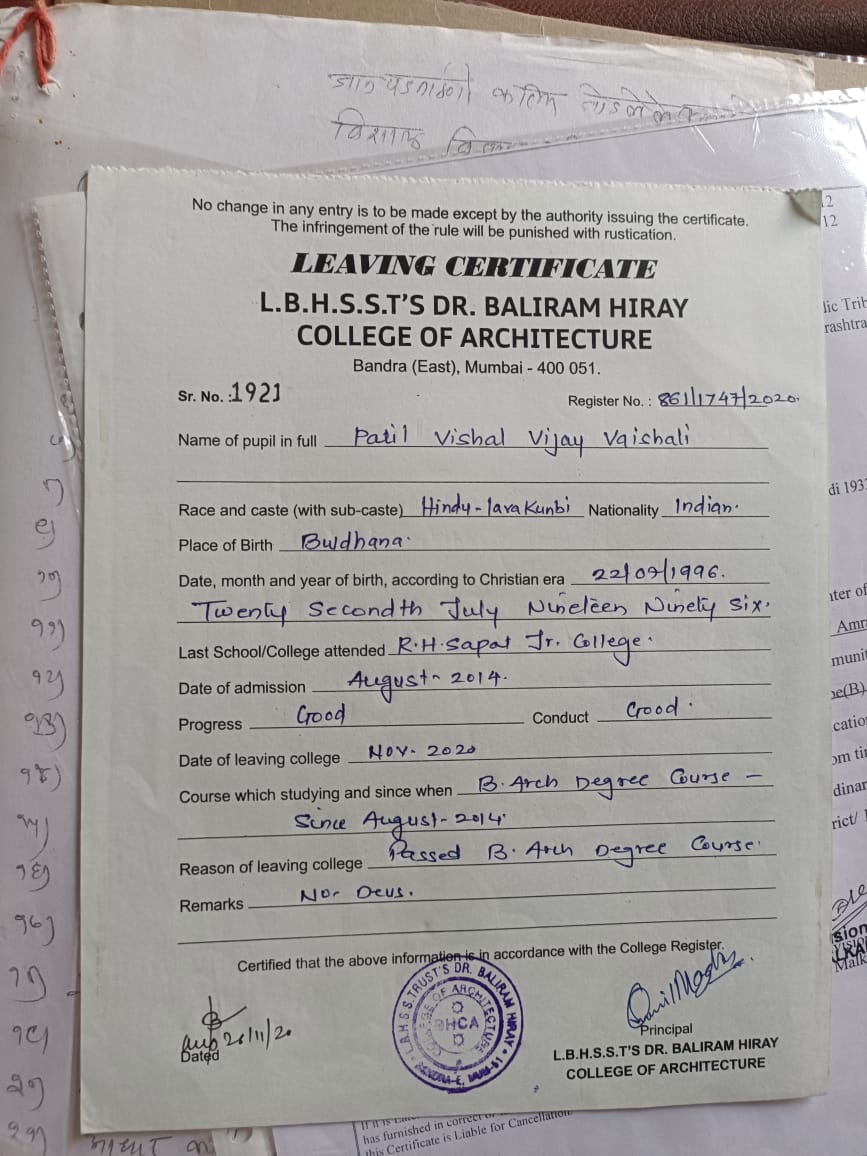 No change in any entry is to be made except by the authority issuing the certificate.
The infringement of the rule will be punished with rustication.
LEAVING CERTIFICATE
L.B.H.S.S.T'S DR. BALIRAM HIRAY
COLLEGE OF ARCHITECTURE
Bandra (East), Mumbai - 400 051.
Sr. No. :1921
Register No. : 861/1747/2020.
Name of pupil in full Patil Vishal Vijay Vaishali
Race and caste (with sub-caste) Hindu-lava Kunbi Nationality Indian.
Place of Birth Buldhana.
Date, month and year of birth, according to Christian era 22/07/1996.
Twenty Secondth July Nineteen Ninety Six.
Last School/College attended R.H.Sapat Jr. College.
Date of admission August- 2014.
Progress Good Conduct Good.
Date of leaving college Nov- 2020
Course which studying and since when B.Arch Degree Course –
Since August-2014.
Reason of leaving college Passed B.Arch Degree Course.
Remarks No- Deus.
Certified that the above information is in accordance with the College Register.
L.B.H.S.S.TRUST'S DR. BALIRAM HIRAY
COLLEGE OF ARCHITECTURE
BHCA
BANDRA-E, MUM-51
20/11/20
Dated
Principal
L.B.H.S.S.T'S DR. BALIRAM HIRAY
COLLEGE OF ARCHITECTURE
12
lic Trib
rashtra
di 193
ater of
Amr
munit
ne(B)
catio
om ti
dinar
rict/
has furnished in correct
this Certificate is Liable for Cancellation